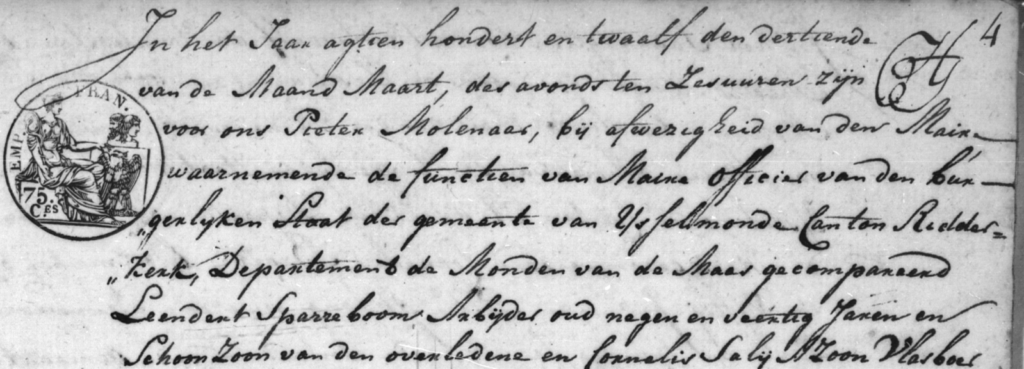 4
In het Jaar agtien hondert en twaalf den dertiende
van de Maand Maart, des avonds ten Zes uuren zijn
EMP. FRAN.
75. Ces
voor ons Pieter Molenaar, bij afwezigheid van den Maire
waarnemende de functien van Maire Officier van den bur-
„gerlyken Staat der gemeente van Ysselmonde Canton Ridder=
„kerk, Departement de Monden van de Maas gecompareerd
Leendert Sparreboom Arbijder oud negen en veertig Jaren en
Schoon Zoon van den overledene en Cornelis Salij AZoon Vlasboer